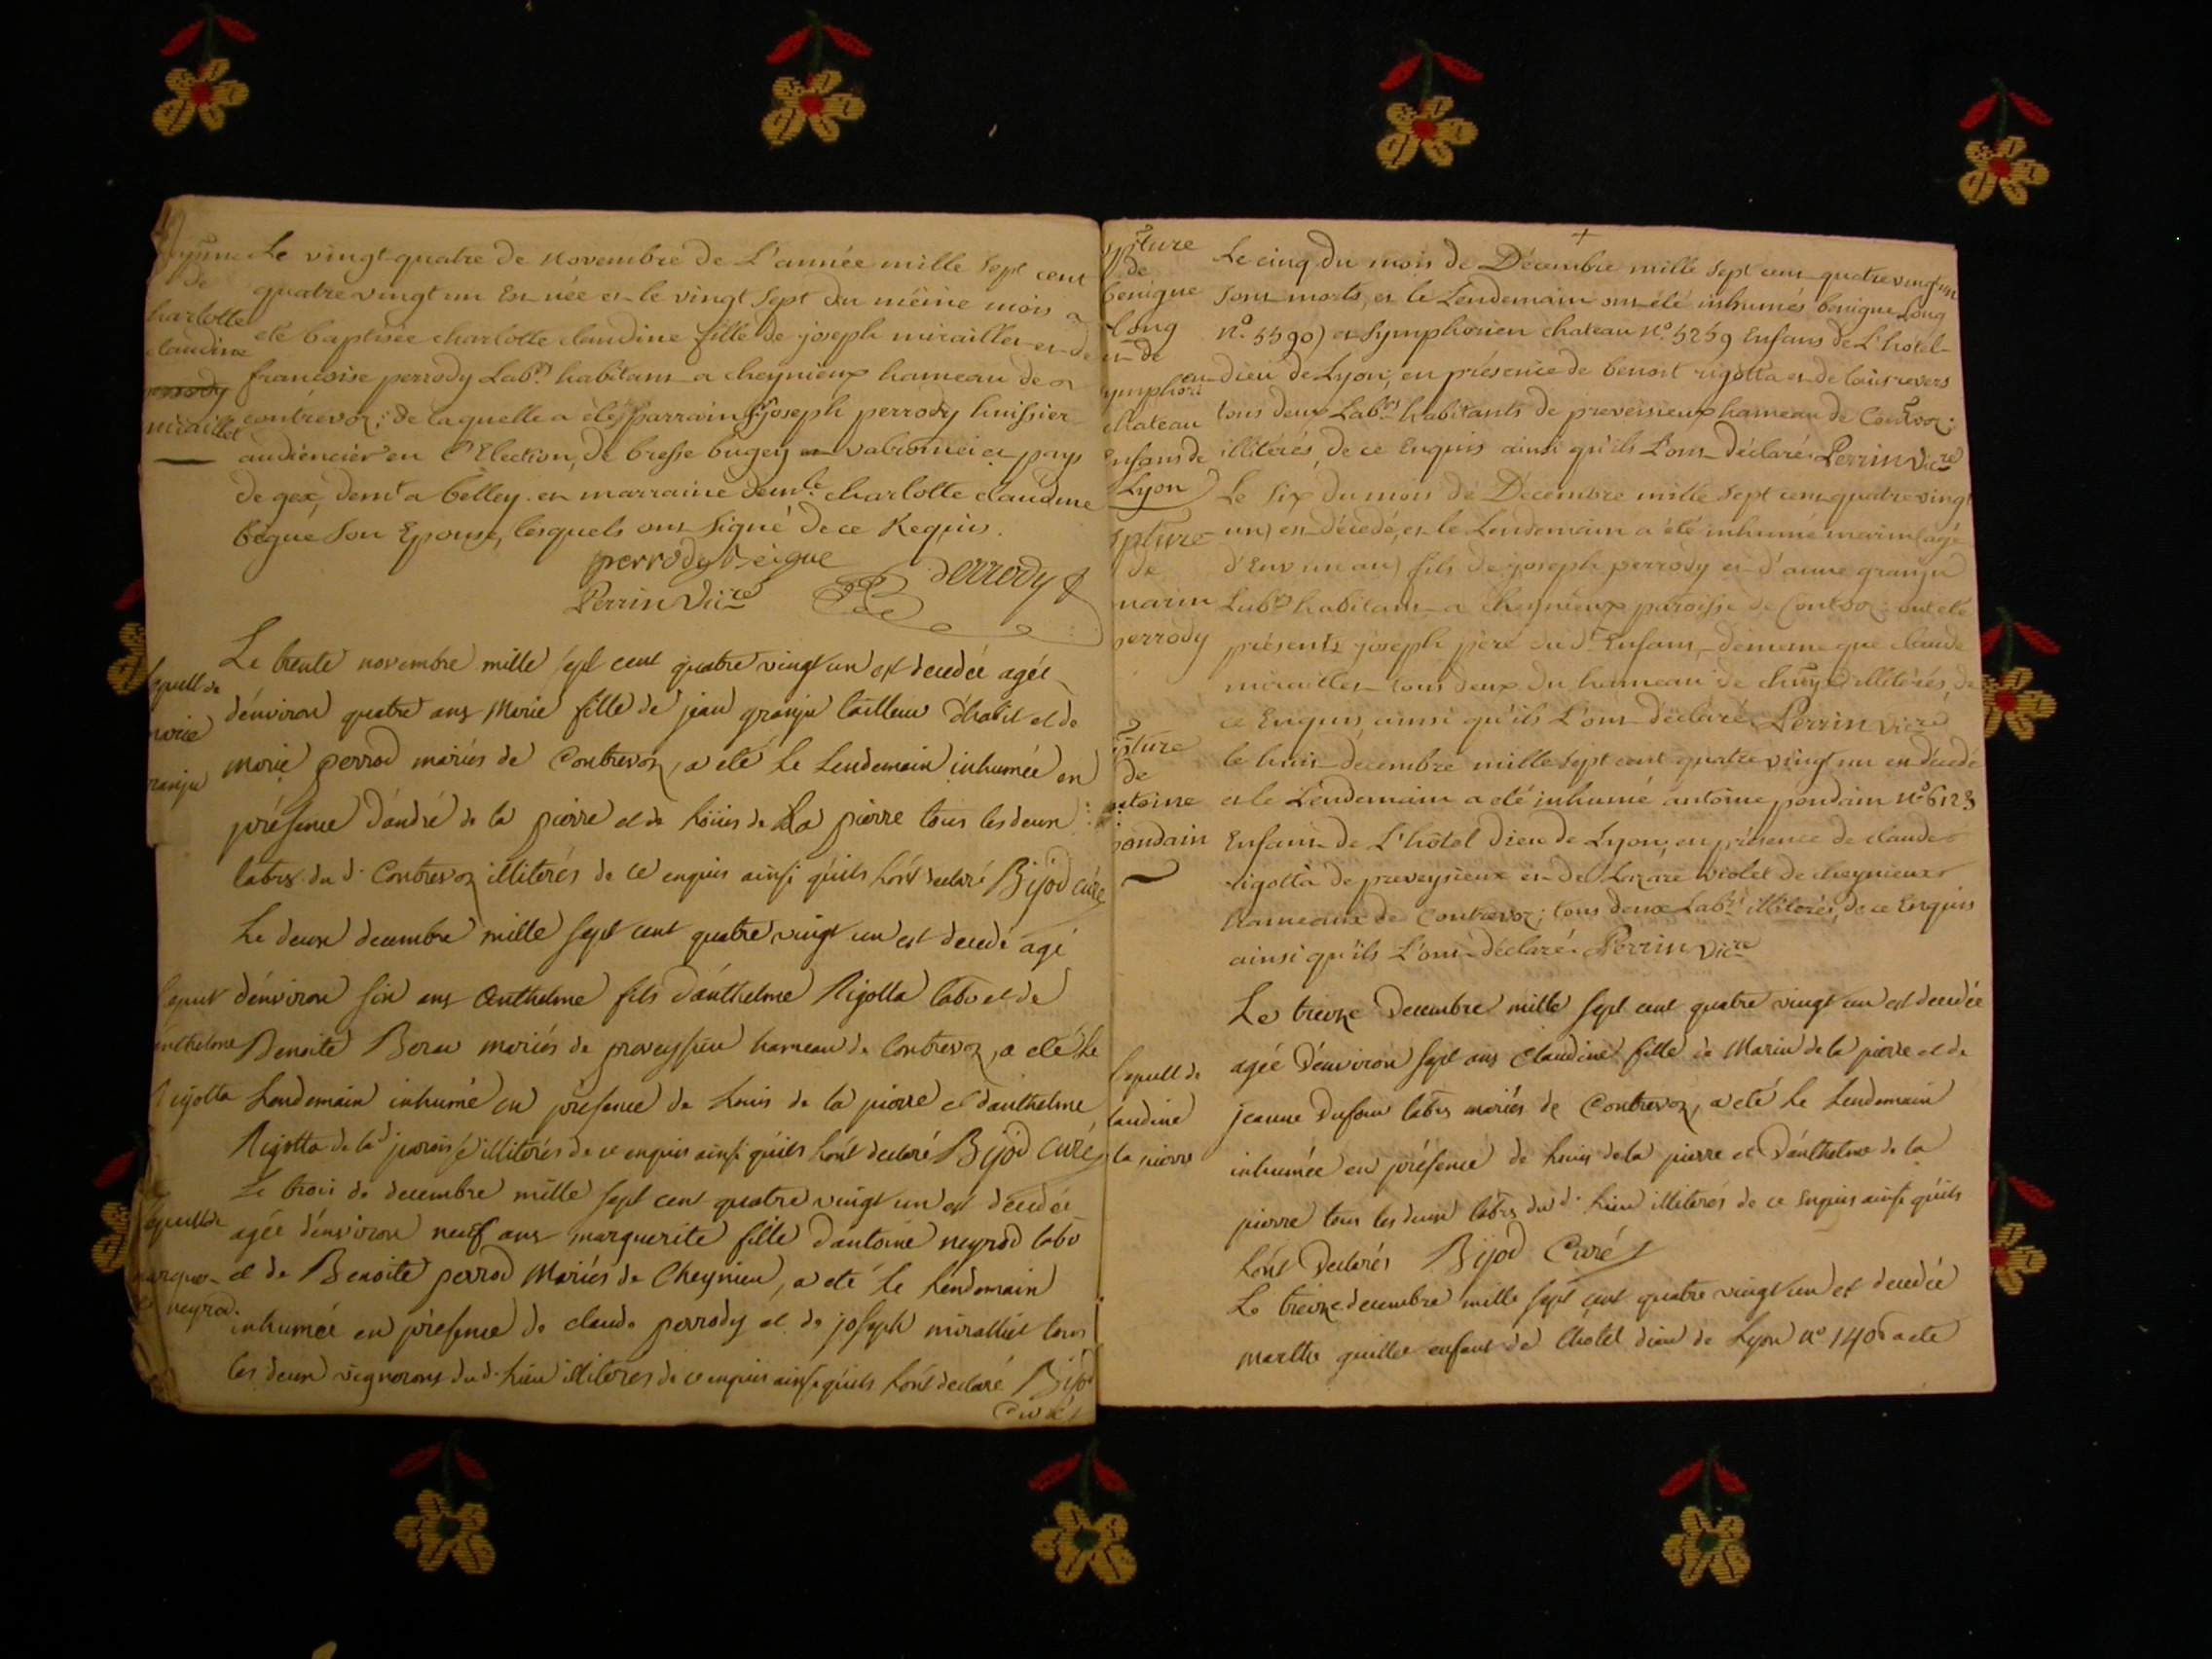 Le vingt-quatre de novembre de L'année mille sept cent
quatre vingt un est née et le vingt sept du même mois a
eté baptisée charlotte claudine fille de joseph miraillet et de
francoise perrody Lab.rs habitans a cheynieux hameau de
contrevoz; de laquelle a été parrain Sr joseph perrody huissier
audiencier en l'Election de bresse bugey valromei et pays
de gex, demt a belley et marraine demlle charlotte claudine
bègue Son Epouse, lesquels ont signé de ce Requis.
perrody Beigue
perrody
Perrin Vicre
Le trente novembre mille sept cent quatre vingt un est decedée agée
d'environ quatre ans Marie fille de jean granju tailleur d'habit et de
Marie perrod mariés de Contrevoz, a eté le Lendemain inhumée en
présence d'andré de la pierre et de Loüis de La pierre tous les deux
labrs du d. Contrevoz illiterés de ce enquis ainsi qu'ils l'ont declaré Bijod curé
Le deux decembre mille sept cent quatre vingt un est decedé agé
d'environ six ans Anthelme fils d'anthelme Rigotta labr et de
Benoite Berar mariés de proveyssieu hameau de Contrevoz, a eté le
Lendemain inhumé en présence de Louis de la pierre et d'anthelme
Rigotta de la d paroisse illiterés de ce enquis ainsi qu'ils l'ont declaré Bijod Curé
Le trois de decembre mille sept cent quatre vingt un est decedée
agée d'environ neuf ans marguerite fille d'antoine neyrod labr
et de Benoite perrod Mariés de Cheynieu, a eté le Lendemain
inhumée en présence de claude perrody et de joseph miralliet tous
les deux vignerons du d. Lieu illiterés de ce enquis ainsi qu'ils l'ont declaré Bijod
Curé
charlotte
claudine
perrody
miraillet
Sepull de
marie
granju
Sepul
anthelme
Rigotta
Sepull de
neyrod
Le cinq du mois de Décembre mille sept cent quatre vingt un
sont morts, et le Lendemain ont été inhumés benigne Long
n° 5590) et Symphorien chateau n° 5259 Enfans de L'hotel
dieu de Lyon; en présence de benoit rigotta et de Louis revers
tous deux Labrs habitants de preveisieux hameau de Contrevoz;
illiterés, de ce Enquis ainsi qu'ils L'ont déclaré Perrin Vicre
Le six du mois de Décembre mille sept cent quatre vingt
un) est décédé, et le Lendemain a été inhumé marin (agé
d'Env un an) fils de joseph perrody et d'anne granju
Labrs habitans a cheynieux paroisse de Contvoz: ont eté
présents joseph père du dt Enfant, de meme que claude
miraillet tous deux du hameau de cheyx illiterés, de
ce Enquis, ainsi qu'ils L'ont déclaré Perrin Vicre
le huit decembre mille sept cent quatre vingt un est décedé
et le Lendemain a eté inhumé antoine pondain n° 6123
Enfant de L'hôtel dieu de Lyon; en présence de claude
rigotta de preveysieux et de Lazare violet de cheynieux
hameaux de Contrevoz; tous deux Labrs illiterés, de ce Enquis
ainsi qu'ils L'ont déclaré. Perrin Vicre
Le treize Decembre mille sept cent quatre vingt un est decedée
agée d'environ sept ans Claudine fille de Marin de la pierre et de
jeanne Dufour labrs mariés de Contrevoz, a eté le Lendemain
inhumée en présence de Louis de la pierre et D'anthelme de la
pierre tous les deux labrs du d. Lieu illiterés de ce enquis ainsi qu'ils
l'ont Declarés Bijod Curé
Le treize decembre mille sept cent quatre vingt un est decedée
Marthe quillet enfant de l'hotel dieu de Lyon n° 1406 a eté
Spture
de
benigne
Long
et de
Symphorien
chateau
Enfans de
Lyon
Spture
de
marin
perrody
Spture
de
antoine
pondain
Sepull de
claudine
la pierre